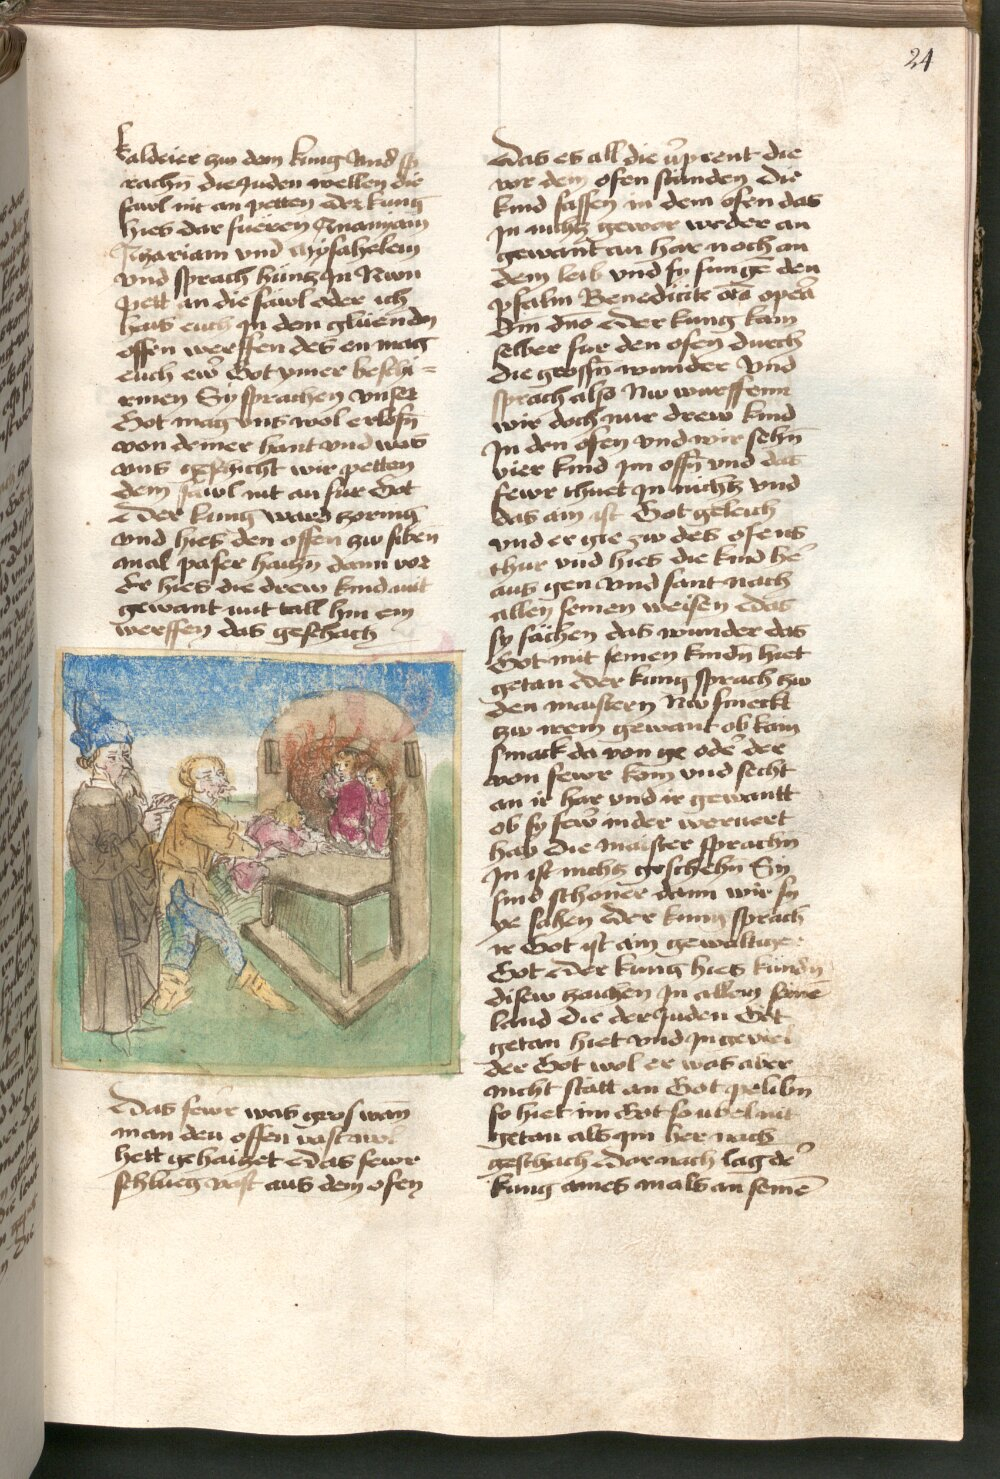 24
kaldeier zw dem kung Vnd sp
rachn̄ die Juden wellen die
sawl nit an petten Der kung
hies dar füeren Ananiam
Azariam vnd Mysahelem
vnd sprach hüntz In Nwn
pett an die säwl oder ich
hais euch In den glüenden
offen werffen des en mag
euch ew̄ Got ymer beschi=
rmen Sy sprachen vnser
Got mag vns wol erlösn̄
von deiner hant vnd was
vns geschicht wir petten
dem säwl nit an fur Got
Der kung ward zornig
vnd hies den offen zw siben
mal paser haitzn̄ dann vor
Er hies die drew kind mit
gewant mit tall hin ein
werffen das geschach
Das fewr was gros wan̄
man den offen vast wol
hett gehaitzet Das fewr
schlueg vast aus dem ofen
Das es all die v̄prent die
vor dem ofen stunden Die
kind sassen in dem ofen das
In nichtz gewar weder an
gewant an har noch an
dem leib vnd sy sungē den
psalm Benedicite om̄a opera
Dm̄ dn̄o Der kung kam
selber fur den ofen durch
die grossn̄ wunder Vnd
sprach also Nw wurffenn
wir doch nur drew kind
In den ofen vnd wir sehn̄
vier kind im offn̄ vnd das
fewr thuet In nichtz vnd
das ain ist Got geleich
vnd er gie zw des ofens
thur vnd hies die kind he᷑
aus gen Vnd sant nach
allen seinen weisen Das
sy sächen das wunder das
Got mit seinen kindn̄ hiet
getan Der kung sprach zw
den maistern Nw smeckt
zw irem gewant ob kain
smack da von ge oder der
von fewr kom vnd secht
an ir har vnd ir gewantt
ob sy fewr inder weruert
hab Die maister sprachn̄
In ist nichtz geschehn Sy
sind schoner dann wir sy
ye sahen Der kung sprach
ir Got ist ain gewaltiger
Got Der kung hies kunden
disew zaichen In allem seinē
land Die der Juden Got
getan hiet vnd In geviel
der Got wol er was aber
nicht stätt an Got pelibn
so hiet im Got so ubel nit
getan als im her nach
geschach Dar nach lag de᷑
kung aines mals an seinē